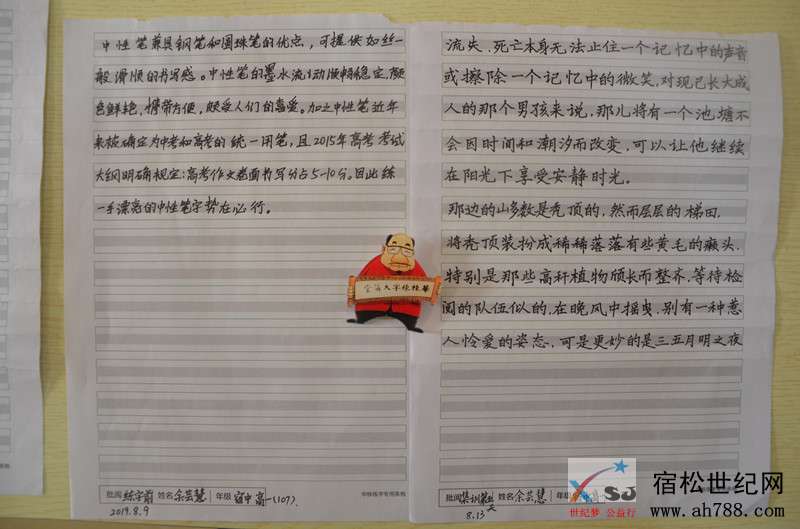 中性笔兼具钢笔和圆珠笔的优点，可提供如丝一
般滑顺的书写感。中性笔的墨水流动顺畅稳定，颜
色鲜艳，携带方便，颇受人们的喜爱。加之中性笔近年
来被确定为中考和高考的统一用笔，且2015年高考考试
大纲明确规定：高考作文卷面书写分占5-10分。因此练
一手漂亮的中性笔字势在必行。
批阅 练字前 姓名 余芸慧 年级 宿中高一(107).
2019.8.9
中性练字专用纸
流失、死亡本身无法止住一个记忆中的声音
或擦除一个记忆中的微笑，对现已长大成
人的那个男孩来说，那儿将有一个池塘不
会因时间和潮汐而改变，可以让他继续
在阳光下享受安静时光。
那边的山多数是秃顶的，然而层层的梯田，
将秃顶装扮成稀稀落落有些黄毛的癞头，
特别是那些高秆植物颀长而整齐，等待检
阅的队伍似的，在晚风中摇曳，别有一种惹
人怜爱的姿态，可是更妙的是三五月明之夜
批阅 集训第五天 姓名 余芸慧 年级
8.13
XSJ
世纪梦 公益行
宿松世纪网
www.ah788.com